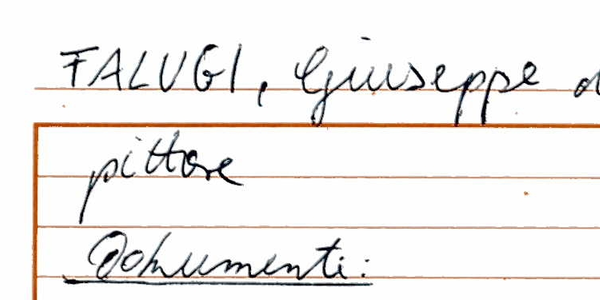 FALUGI, Giuseppe
pittore
Dokumenti: